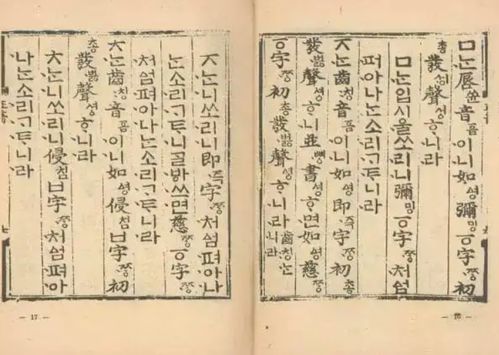 ㅁᄂᆞᆫ脣쓘音ᅙᅳᆷ이니如ᅀᅧᆼ彌밍ㆆ字ᄍᆞᆼ初
총發벓聲셩ᄒᆞ니라
ㅁᄂᆞᆫ입시울쏘리니彌밍ㆆ字ᄍᆞᆼ처ᅀᅥᆷ
펴아나ᄂᆞᆫ소리ᄀᆞᄐᆞ니라
ㅈᄂᆞᆫ齒칭音ᅙᅳᆷ이니如ᅀᅧᆼ即즉字ᄍᆞᆼ初총
發벓聲셩ᄒᆞ니並뼝書셩ᄒᆞ면如ᅀᅧᆼ慈ᄍᆞᆼ
ㆆ字ᄍᆞᆼ初총發벓聲셩ᄒᆞ니라齒칭ᄂᆞᆫ니라
— 16 —
ㅈᄂᆞᆫ니쏘리니即즉字ᄍᆞᆼ처ᅀᅥᆷ펴아나
ᄂᆞᆫ소리ᄀᆞᄐᆞ니ᄀᆞᆯᄫᅡ쓰면慈ᄍᆞᆼㆆ字ᄍᆞᆼ
처ᅀᅥᆷ펴아나ᄂᆞᆫ소리ᄀᆞᄐᆞ니라
ㅊᄂᆞᆫ齒칭音ᅙᅳᆷ이니如ᅀᅧᆼ侵침ㅂ字ᄍᆞᆼ初
총發벓聲셩ᄒᆞ니라
ㅊᄂᆞᆫ니쏘리니侵침ㅂ字ᄍᆞᆼ처ᅀᅥᆷ펴아
나ᄂᆞᆫ소리ᄀᆞᄐᆞ니라
— 17 —